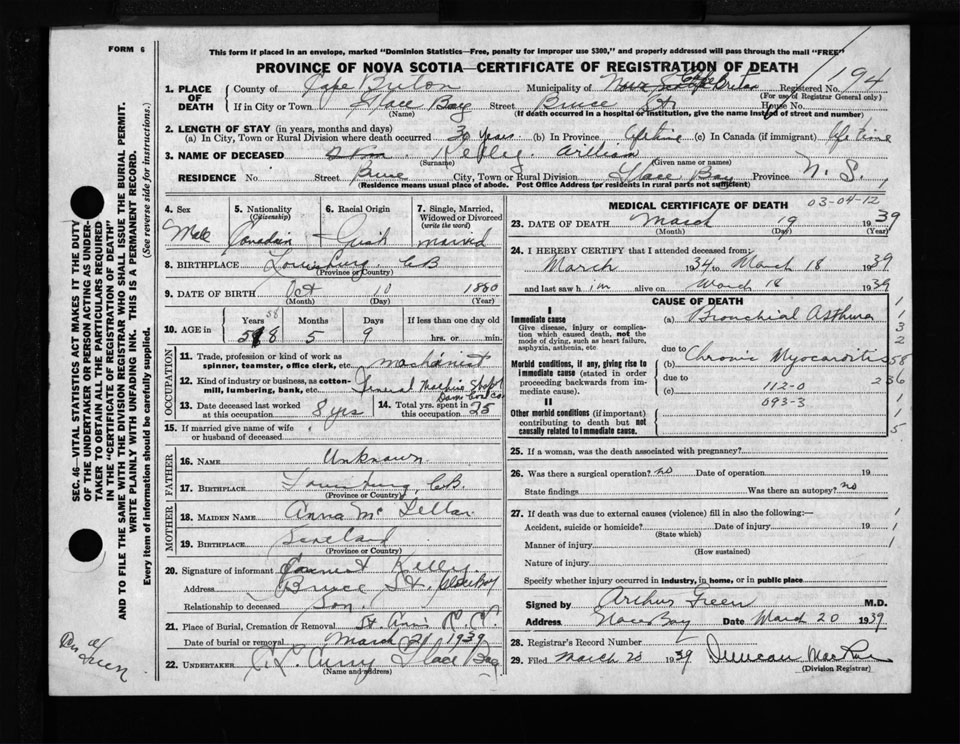 FORM 6
This form if placed in an envelope, marked "Dominion Statistics—Free, penalty for improper use $300," and properly addressed will pass through the mail "FREE"
PROVINCE OF NOVA SCOTIA—CERTIFICATE OF REGISTRATION OF DEATH
194
1. PLACE OF DEATH County of Cape Breton Municipality of Cape Breton Registered No.
(For use of Registrar General only)
If in City or Town Glace Bay Street Bruce St House No.
(Name) (If death occurred in a hospital or institution, give the name instead of street and number)
2. LENGTH OF STAY (in years, months and days)
(a) In City, Town or Rural Division where death occurred 30 years (b) In Province Lifetime (c) In Canada (if immigrant) Lifetime
3. NAME OF DECEASED Kelley William
(Surname) (Given name or names)
RESIDENCE No. Street Bruce City, Town or Rural Division Glace Bay Province N. S.
(Residence means usual place of abode. Post Office Address for residents in rural parts not sufficient)
4. Sex Male
5. Nationality (Citizenship) Canadian
6. Racial Origin Irish
7. Single, Married, Widowed or Divorced (write the word) married
8. BIRTHPLACE Louisburg, CB
(Province or Country)
9. DATE OF BIRTH Oct 10 1880
(Month) (Day) (Year)
10. AGE in Years 58 Months 5 Days 9 If less than one day old hrs. or min.
OCCUPATION
11. Trade, profession or kind of work as spinner, teamster, office clerk, etc. machinist
12. Kind of industry or business, as cotton-mill, lumbering, bank, etc. General
13. Date deceased last worked at this occupation 8 yrs
14. Total yrs. spent in this occupation 25
15. If married give name of wife or husband of deceased
FATHER
16. NAME Unknown
17. BIRTHPLACE Louisburg, C.B.
(Province or Country)
MOTHER
18. MAIDEN NAME Anna Mc Lellan
19. BIRTHPLACE
(Province or Country)
20. Signature of informant Kelley
Address Bruce St. Glace Bay
Relationship to deceased Son
21. Place of Burial, Cremation or Removal St. Anns
Date of burial or removal March 21 1939
22. UNDERTAKER Curry Glace Bay
(Name and address)
MEDICAL CERTIFICATE OF DEATH
03-04-12
23. DATE OF DEATH March 19 1939
(Month) (Day) (Year)
24. I HEREBY CERTIFY that I attended deceased from:
March 1934 to March 18 1939
and last saw him alive on March 18 1939
CAUSE OF DEATH
I
Immediate cause (a) Bronchial Asthma
Give disease, injury or complication which caused death, not the mode of dying, such as heart failure, asphyxia, asthenia, etc
due to
Morbid conditions, if any, giving rise to immediate cause (stated in order proceeding backwards from immediate cause). (b) Chronic Myocarditis
due to
(c) 112-0
II
093-3
Other morbid conditions (if important) contributing to death but not causally related to immediate cause.
25. If a woman, was the death associated with pregnancy?
26. Was there a surgical operation? no Date of operation 19
State findings Was there an autopsy? no
27. If death was due to external causes (violence) fill in also the following:—
Accident, suicide or homicide? Date of injury 19
(State which)
Manner of injury
(How sustained)
Nature of injury
Specify whether injury occurred in industry, in home, or in public place
Signed by Arthur Green M.D.
Address Glace Bay Date March 20 1939
28. Registrar's Record Number
29. Filed March 20 1939 Duncan
(Division Registrar)
SEC. 46—VITAL STATISTICS ACT MAKES IT THE DUTY
OF THE UNDERTAKER OR PERSON ACTING AS UNDER-
TAKER TO OBTAIN ALL THE PARTICULARS REQUIRED
IN THE "CERTIFICATE OF REGISTRATION OF DEATH"
AND TO FILE THE SAME WITH THE DIVISION REGISTRAR WHO SHALL ISSUE THE BURIAL PERMIT.
WRITE PLAINLY WITH UNFADING INK. THIS IS A PERMANENT RECORD.
Every item of information should be carefully supplied. (See reverse side for instructions.)